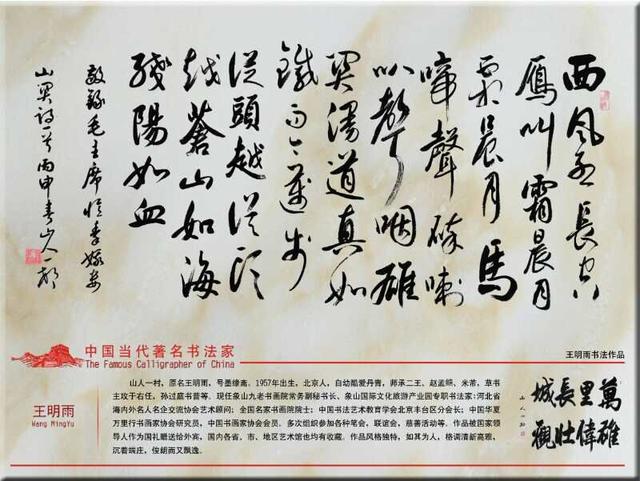 西風烈長空
雁叫霜晨月
霜晨月馬
啼聲碎喇
叭聲咽雄
関漫道真如
鐵而今邁步
從頭越從頭
越蒼山如海
殘陽如血
敬録毛主席憶秦娥婁
山関詞一首丙申春山人一村
中国当代著名书法家
The Famous Calligrapher of China
王明雨书法作品
王明雨
Wang MingYu
山人一村，原名王明雨，号墨缘斋，1957年出生，北京人，自幼酷爱丹青，师承二王、赵孟頫、米芾，草书
主攻于右任、孙过庭书普等。现任象山九老书画院常务副秘书长、象山国际文化旅游产业园专职书法家；河北省
海内外名人名企交流协会艺术顾问；全国名家书画院院士；中国书法艺术教育学会北京丰台区分会长；中国华夏
万里行书画家协会研究员，中国书画家协会会员。多次组织参加各种笔会，联谊会，慈善活动等。作品被国家领
导人作为国礼赠送给外宾，国内各省、市、地区艺术馆也均有收藏。作品风格独特，如其为人，格调清新高雅，
沉着端庄，俊朗而又飘逸。
萬里長城
雄偉壯觀
山人一村